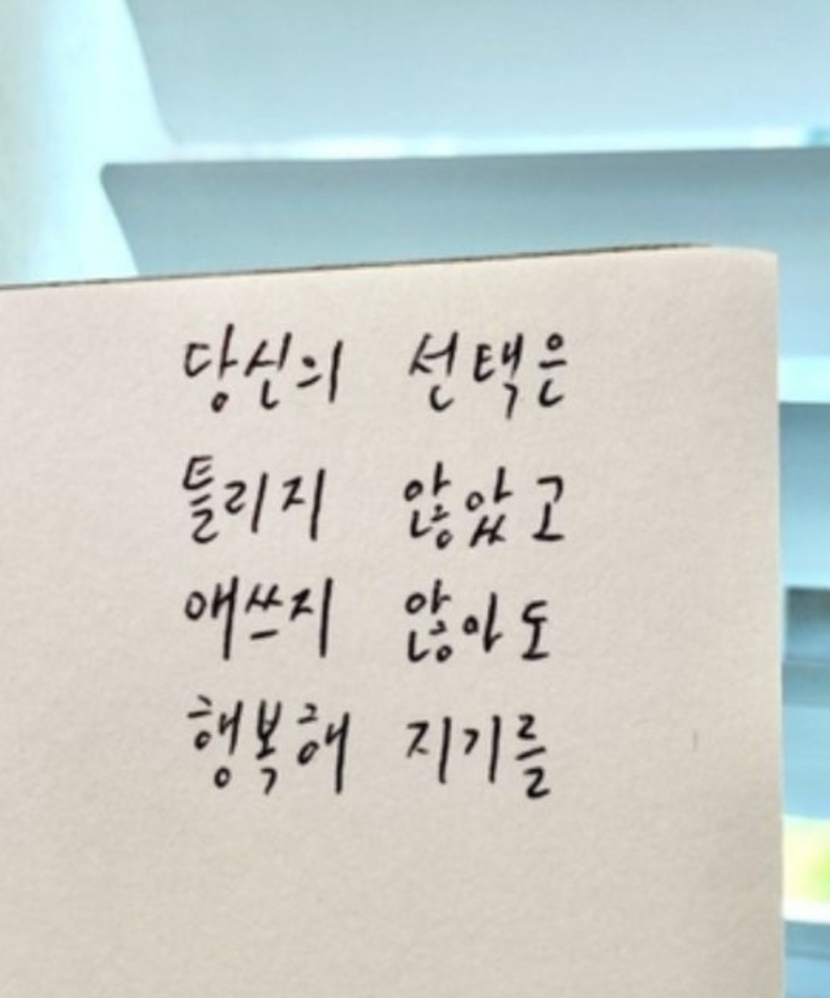 당신의 선택은
틀리지 않았고
애쓰지 않아도
행복해 지기를